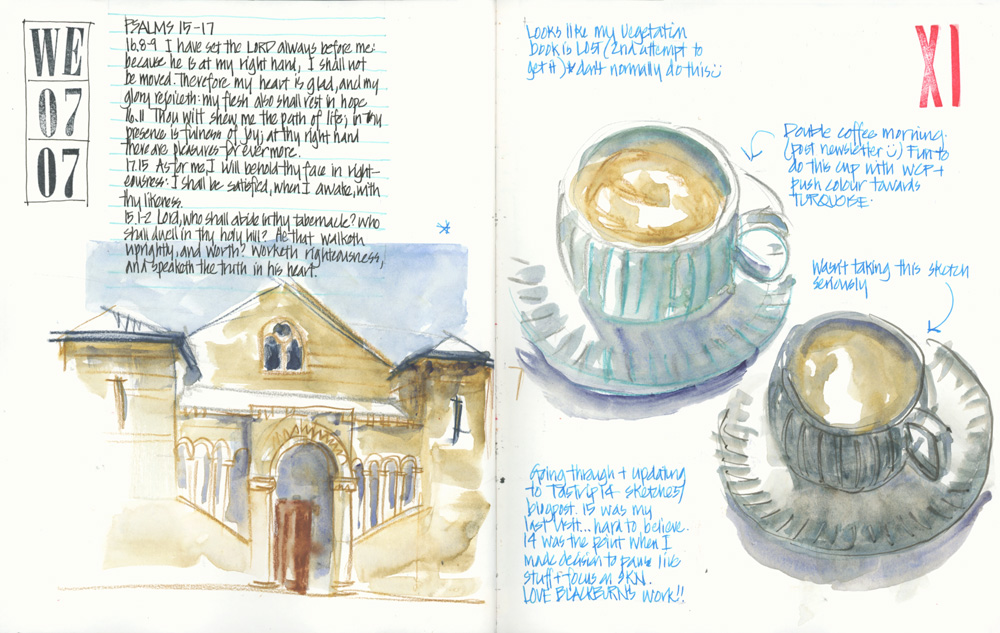 WE
07
07
PSALMS 15-17
16.8-9 I have set the LORD always before me:
because he is at my right hand, I shall not
be moved. Therefore my heart is glad, and my
glory rejoiceth: my flesh also shall rest in hope
16.11 Thou wilt shew me the path of life; in thy
presence is fulness of joy; at thy right hand
there are pleasures for evermore.
17.15 As for me, I will behold thy face in right-
eousness: I shall be satisfied, when I awake, with
thy likeness.
15.1-2 Lord, who shall abide in thy tabernacle? Who
shall dwell in thy holy hill? He that walketh
uprightly, and worth? worketh righteousness,
and speaketh the truth in his heart.
Looks like my Vegetation
book is LOST (2nd attempt to
get it) don't normally do this
XI
Double coffee morning.
(post newsletter) Fun to
do this cup with WCP +
push colour towards
TURQUOISE.
Wasn't taking this sketch
seriously
Going through + updating
to Tastrip14 sketches/
blogpost. 15 was my
last visit... hard to believe.
14 was the point when I
made decision to pause live
stuff + focus on SKN.
LOVE BLACKBURN'S WORK!!